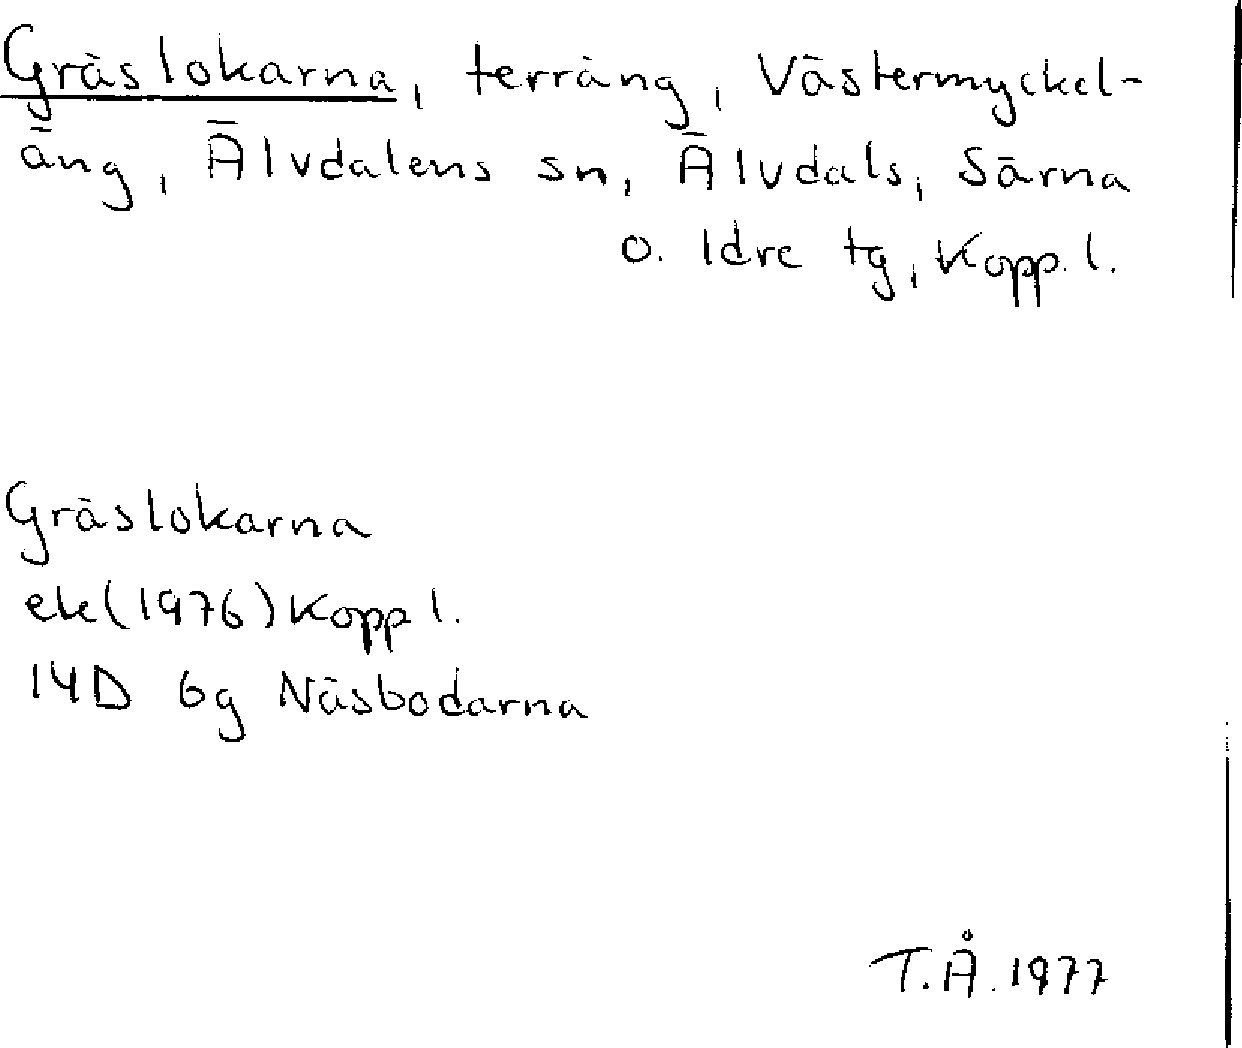 Gräslokarna, terräng, Västermyckel-
äng, Älvdalens sn, Älvdals, Särna
o. Idre tg, Kopp. l.
Gräslokarna
ek(1976) Kopp l.
14D 6g Näsbodarna
T.Å. 1977